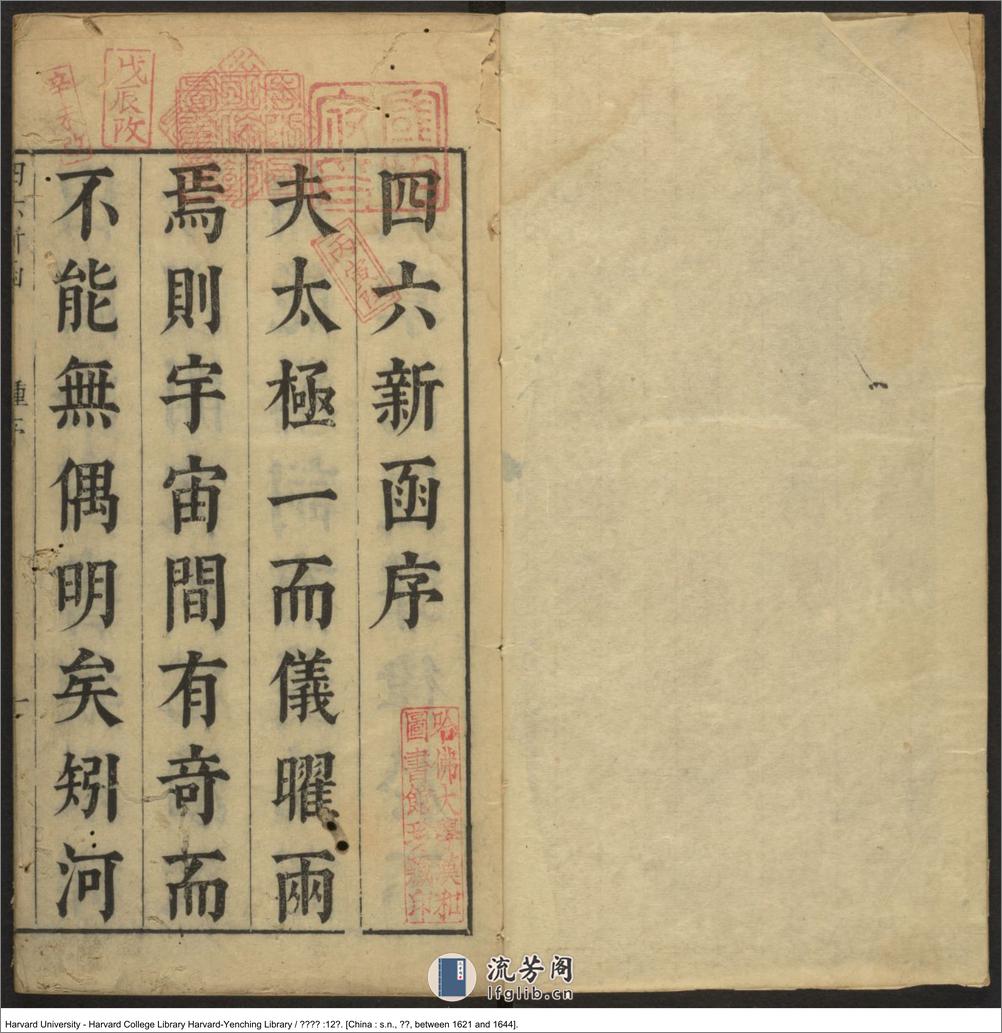 四六新函序
夫太極一而儀曜兩
焉則宇宙間有奇而
不能無偶明矣矧河
戊辰改
哈佛大學漢和
圖書館珍藏印
流芳阁
lfglib.cn
Harvard University - Harvard College Library Harvard-Yenching Library / ???? :12?. [China : s.n., ??, between 1621 and 1644].